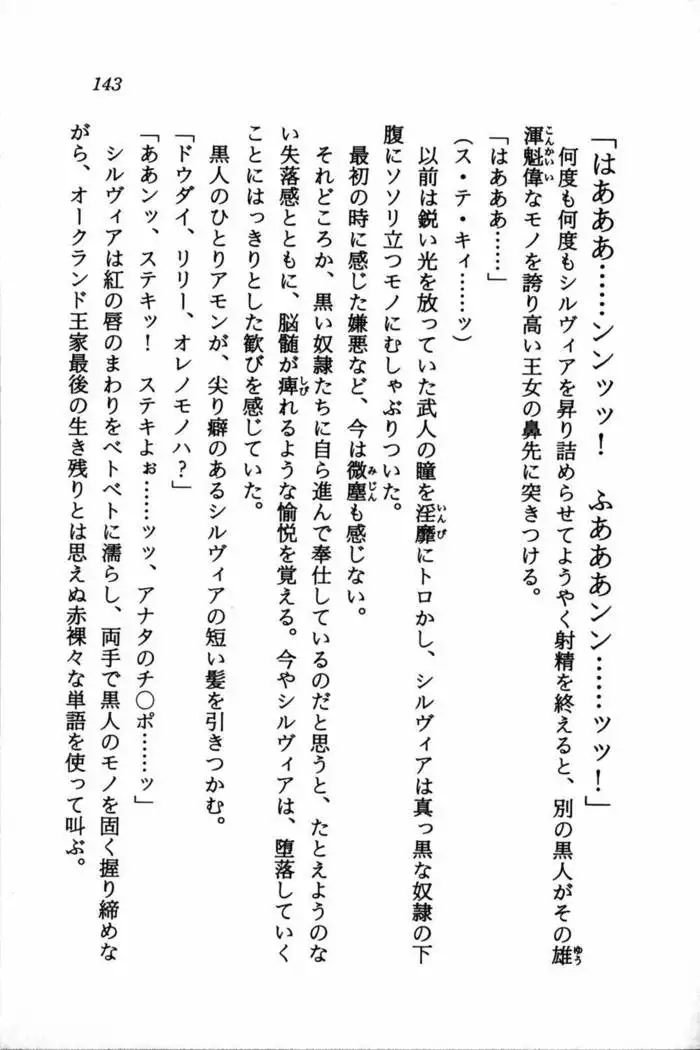 143
「はあああ……ンンッッ！　ふあああンン……ッッ！」
何度も何度もシルヴィアを昇り詰めらせてようやく射精を終えると、別の黒人がその雄
渾魁偉なモノを誇り高い王女の鼻先に突きつける。
「はあああ……」
(ス・テ・キィ……ッ)
以前は鋭い光を放っていた武人の瞳を淫靡にトロかし、シルヴィアは真っ黒な奴隷の下
腹にソソリ立つモノにむしゃぶりついた。
最初の時に感じた嫌悪など、今は微塵も感じない。
それどころか、黒い奴隷たちに自ら進んで奉仕しているのだと思うと、たとえようのな
い失落感とともに、脳髄が痺れるような愉悦を覚える。今やシルヴィアは、堕落していく
ことにはっきりとした歓びを感じていた。
黒人のひとりアモンが、尖り癖のあるシルヴィアの短い髪を引きつかむ。
「ドウダイ、リリー、オレノモノハ？」
「ああンッ、ステキッ！　ステキよぉ……ッッ、アナタのチ〇ポ……ッ」
シルヴィアは紅の唇のまわりをベトベトに濡らし、両手で黒人のモノを固く握り締めな
がら、オークランド王家最後の生き残りとは思えぬ赤裸々な単語を使って叫ぶ。